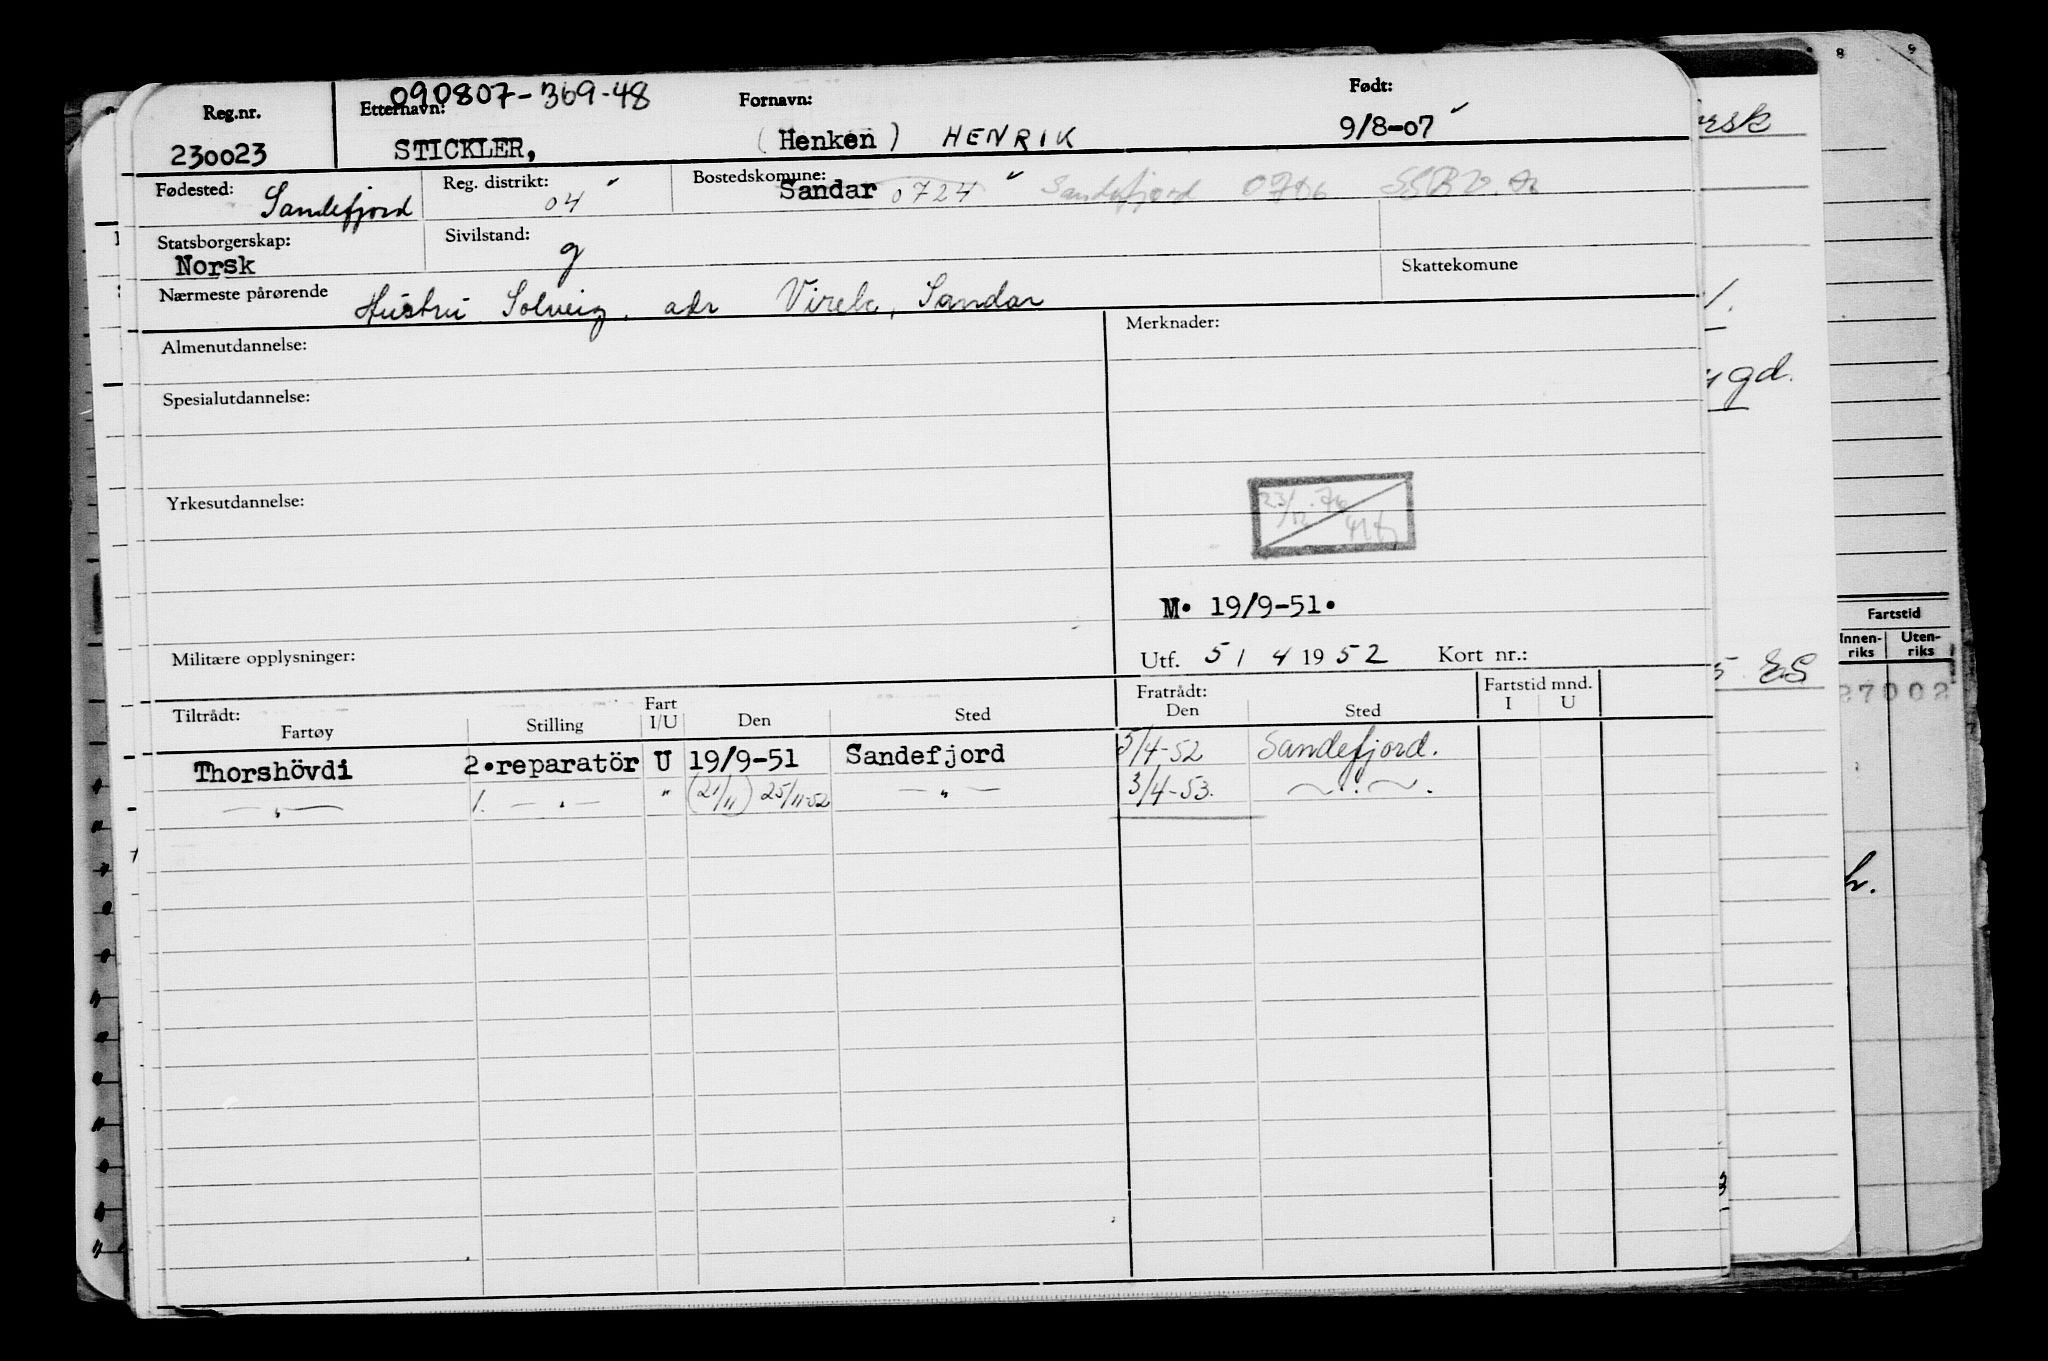 090807-369-48
Reg.nr. Etternavn: Fornavn: Født:
230023 STICKLER, (Henken) HENRIK 9/8-07
Fødested: Reg. distrikt: Bostedskomune:
Sandefjord 04 Sandar 0724 Sandefjord 0706
Statsborgerskap: Sivilstand:
Norsk g Skattekomune
Nærmeste pårørende Hustru Solveig, adr Virek, Sandar
Almenutdannelse: Merknader:
Spesialutdannelse:
Yrkesutdannelse:
M. 19/9-51.
Militære opplysninger: Utf. 5/4 1952 Kort nr.:
Tiltrådt: Fratrådt: Fartstid mnd.
Fartøy Stilling Fart I/U Den Sted Den Sted I U
Thorshövdi 2.reparatör U 19/9-51 Sandefjord 5/4-52 Sandefjord.
—„— 1. —„— " (21/11) 25/11-52 —„— 3/4-53. —„—.
8 9
orsk
gd.
Fartstid
Innen-riks Uten-riks
5 ES
27002
h.